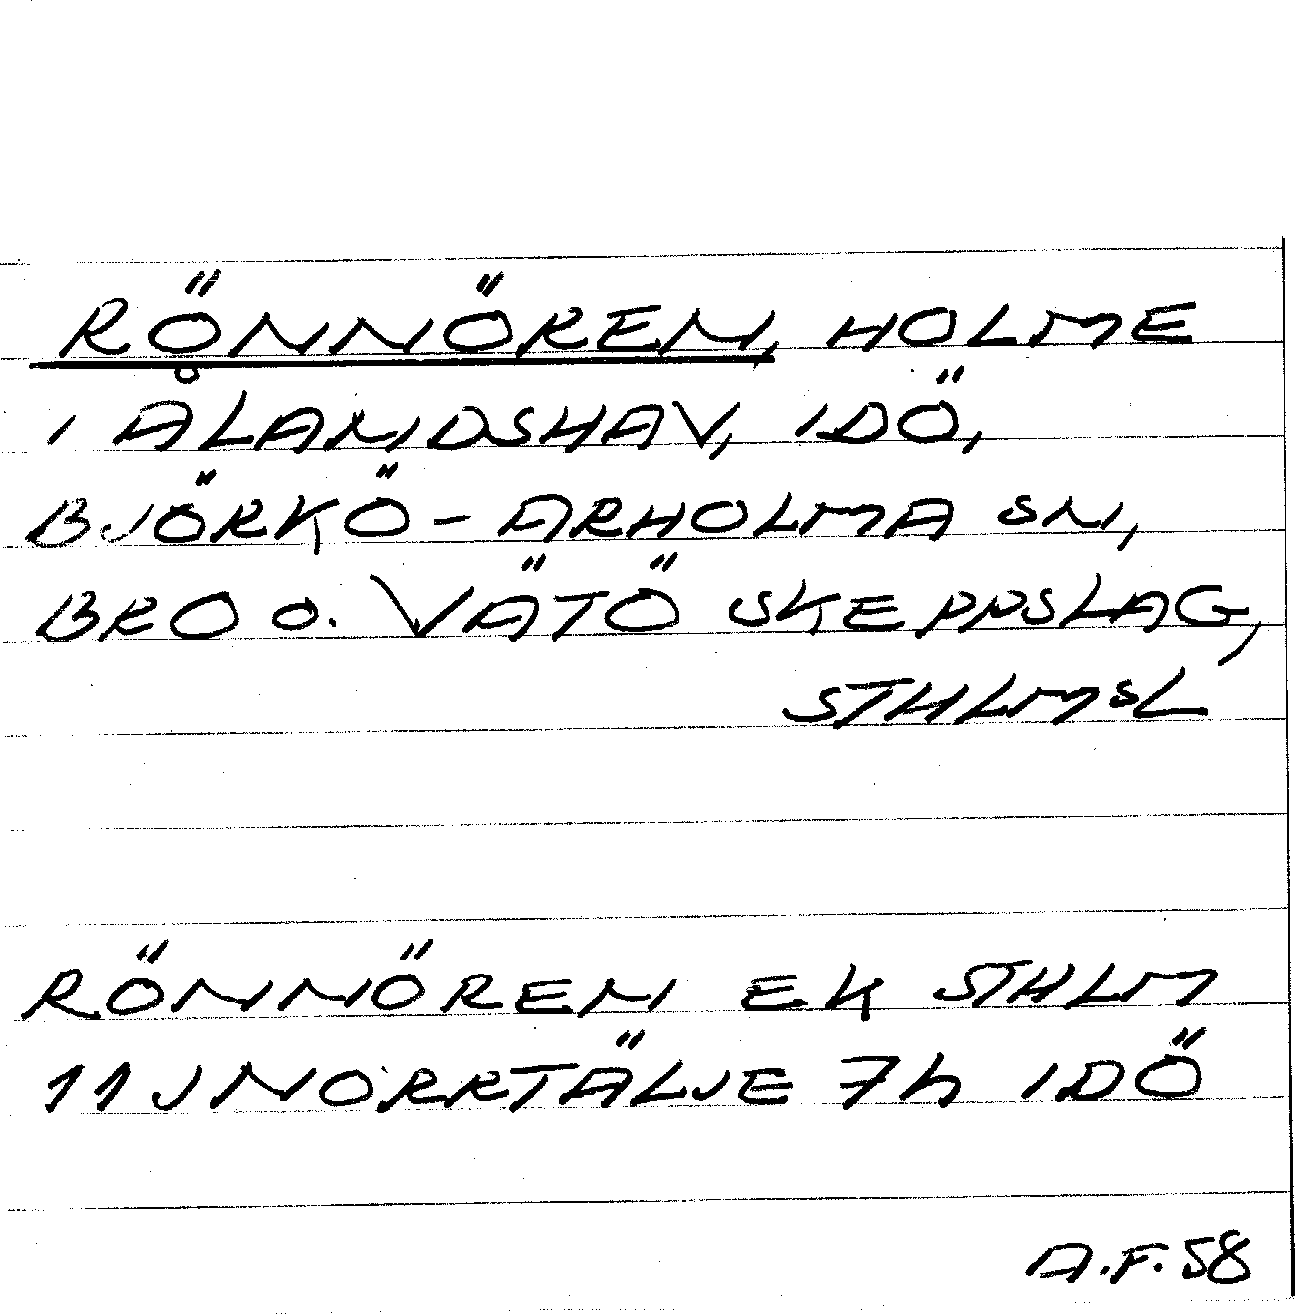 RÖNNÖREN, HOLME
I ÅLANDSHAV, IDÖ,
BJÖRKÖ-ARHOLMA SN,
BRO O. VÄTÖ SKEPPSLAG,
STHLMSL
RÖNNÖREN EK STHLM
11J NORRTÄLJE 7h IDÖ
A.F. 58